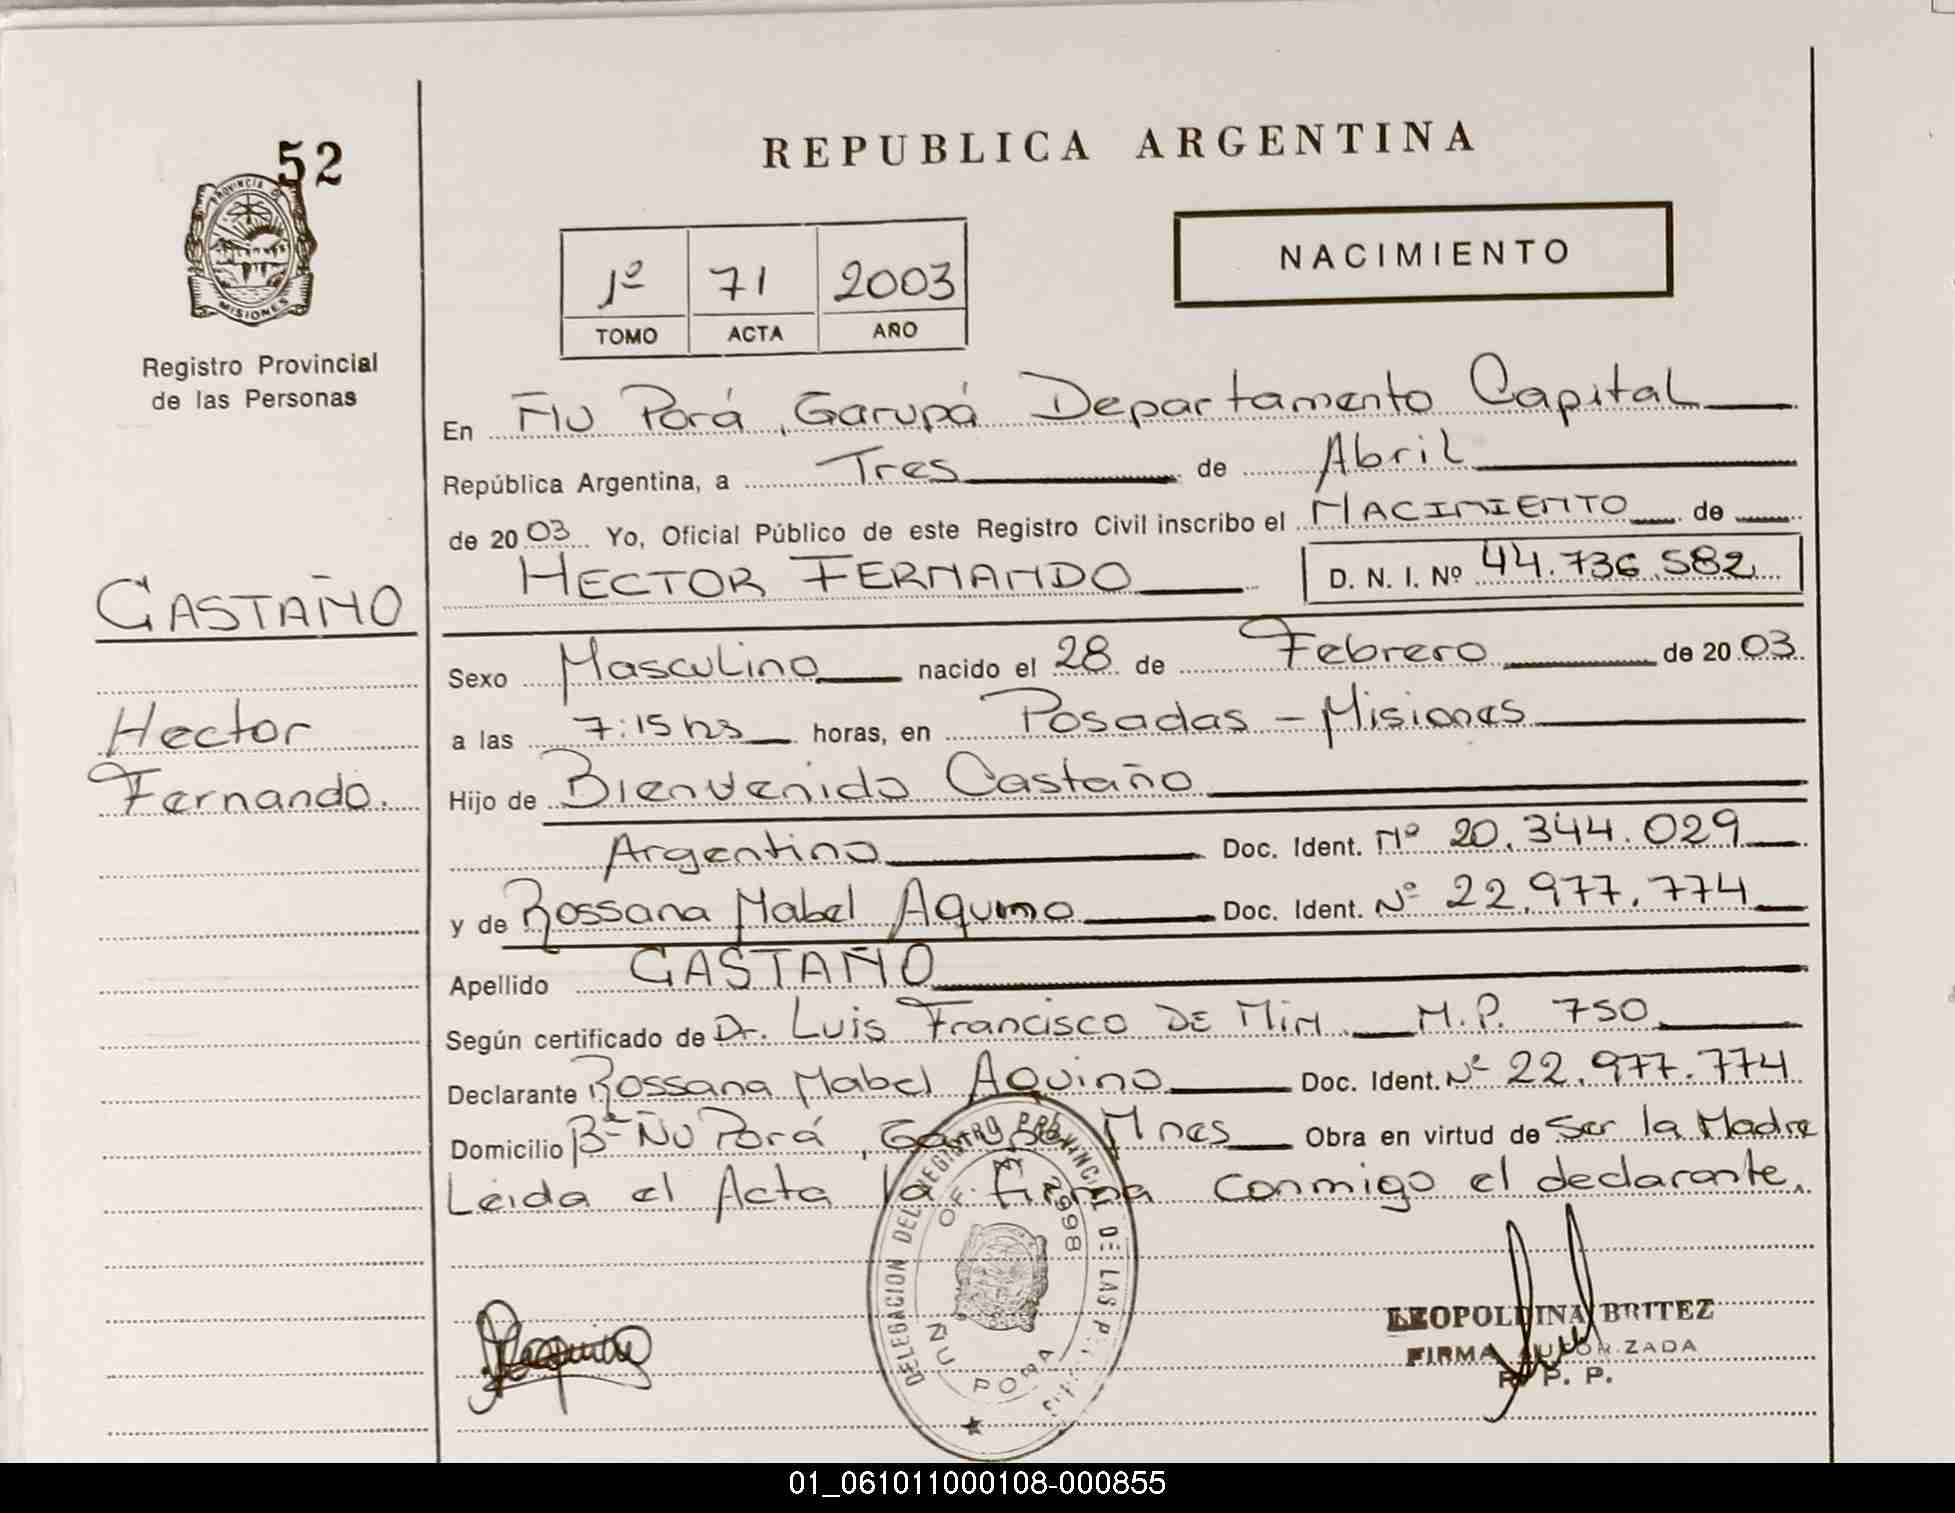 52
PROVINCIA DE
MISIONES
Registro Provincial
de las Personas
REPUBLICA ARGENTINA
NACIMIENTO
1º 71 2003
TOMO ACTA AÑO
En Ñu Porá, Garupá Departamento Capital
República Argentina, a Tres de Abril
de 2003 Yo, Oficial Público de este Registro Civil inscribo el NACIMIENTO de
HECTOR FERNANDO D. N. I. Nº 44.736.582
CASTAÑO
Hector
Fernando.
Sexo Masculino nacido el 28 de Febrero de 2003
a las 7:15 hs horas, en Posadas - Misiones
Hijo de Bienvenido Castaño
Argentino Doc. Ident. Nº 20.344.029
y de Rossana Mabel Aquino Doc. Ident. Nº 22.977.774
Apellido CASTAÑO
Según certificado de Dr. Luis Francisco DE MIN M.P. 750
Declarante Rossana Mabel Aquino Doc. Ident. Nº 22.977.774
Domicilio Bº Ñu Porá, Garupá Mnes Obra en virtud de Ser la Madre
Leida el Acta la firma conmigo el declarante.
DELEGACION DEL REGISTRO PROVINCIAL DE LAS
OF 2998
ÑU PORA
LEOPOLDINA BRITEZ
FIRMA AUTORIZADA
R. P. P.
01_061011000108-000855